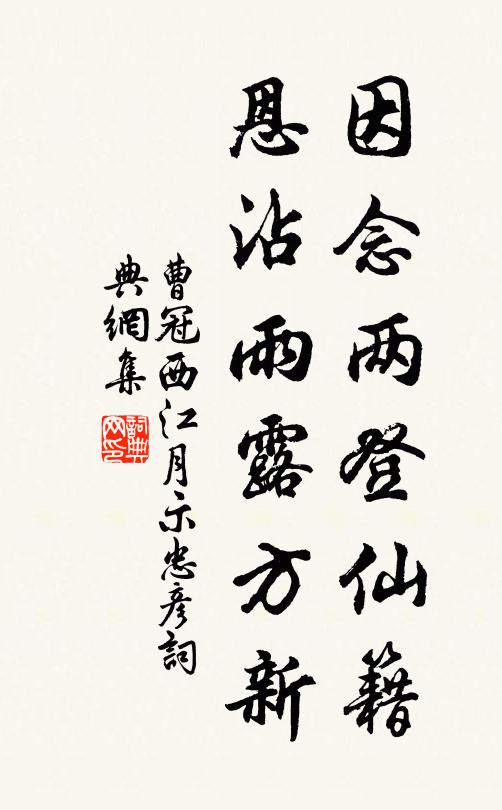 因念两登仙籍
恩沾雨露方新
曹冠西江月示忠彦詞
典網集
詞典網印